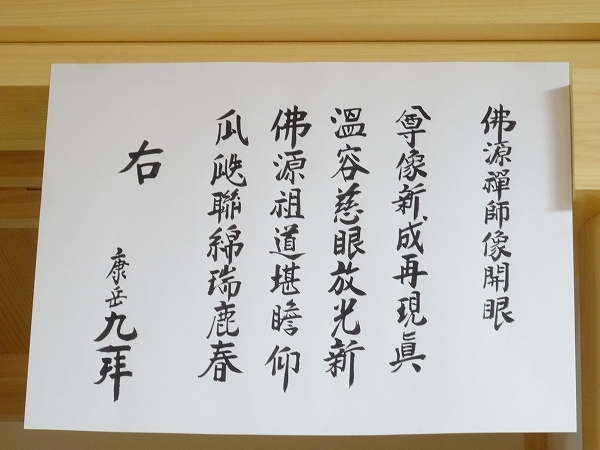 佛源禪師像開眼
尊像新成再現眞
溫容慈眼放光新
佛源祖道堪瞻仰
瓜瓞聯綿瑞鹿春
右
康岳九拜